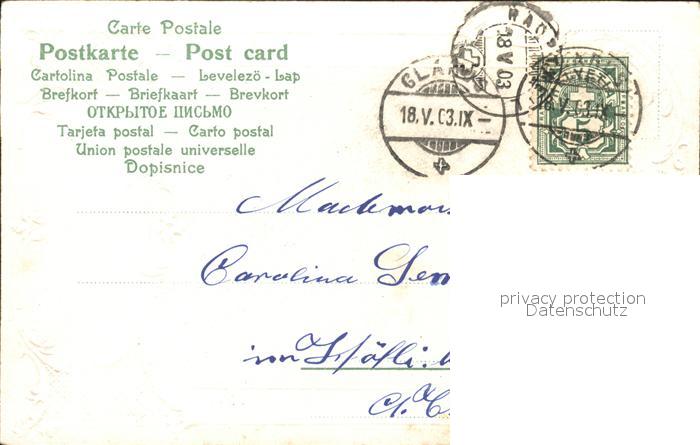 Carte Postale
Postkarte — Post card
Cartolina Postale — Levelező-Lap
Brefkort — Briefkaart — Brevkort
ОТКРЫТОЕ ПИСЬМО
Tarjeta postal — Carto postal
Union postale universelle
Dopisnice
18.V.03
18.V.03.IX-
5
Mademoi
Carolina
im
privacy protection
Datenschutz